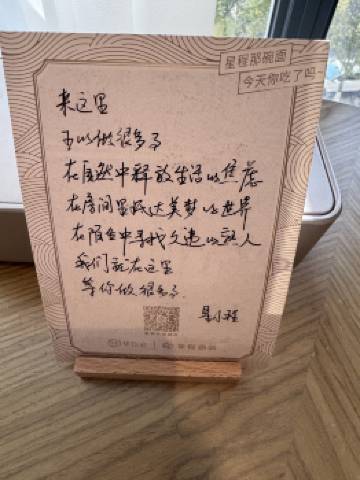 星程那碗面
今天你吃了吗
来这里
可以做很多事
在自然中释放生活的焦虑
在房间里抵达美梦的世界
在陌生中寻找久违的熟人
我们就在这里
等你做很多事.
星小程
华住会